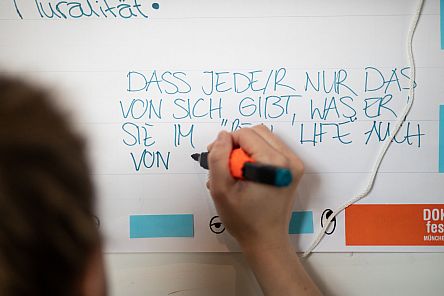 Pluralität.
DASS JEDE/R NUR DAS
VON SICH GIBT, WAS ER
SIE IM "REAL LIFE AUCH
VON
DOK
fes
MÜNCHEN